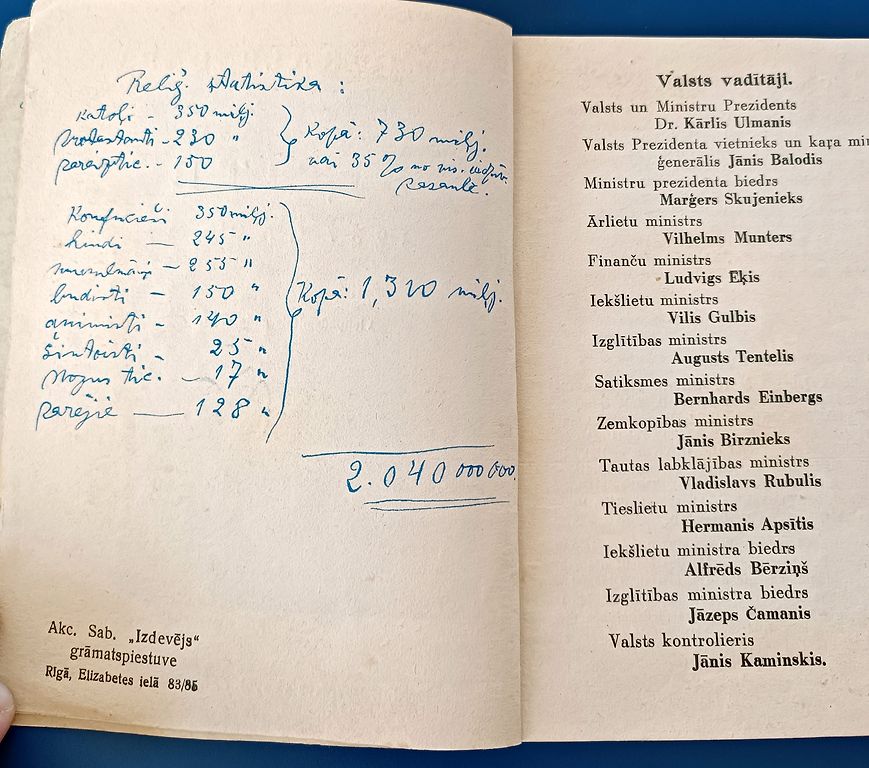 Relig. statistika:
katoļi - 350 milj.
protestanti - 230 "
pareiztic. - 150
Kopā: 730 milj.
vai 35% no vis. iedzīv.
pasaulē.
Konfucieši 350 milj.
hindi — 245 "
musulmāņi — 255 "
budisti — 150 "
animisti - 140 "
šintoisti - 25 "
mozus tic. - 17 "
pārējie — 128 "
Kopā: 1,310 milj.
2.040 000 000.
Akc. Sab. „Izdevējs“
grāmatspiestuve
Rīgā, Elizabetes ielā 83/85
Valsts vadītāji.
Valsts un Ministru Prezidents
Dr. Kārlis Ulmanis
Valsts Prezidenta vietnieks un kaŗa min
ģenerālis Jānis Balodis
Ministru prezidenta biedrs
Marģers Skujenieks
Ārlietu ministrs
Vilhelms Munters
Finanču ministrs
Ludvigs Ēķis
Iekšlietu ministrs
Vilis Gulbis
Izglītības ministrs
Augusts Tentelis
Satiksmes ministrs
Bernhards Einbergs
Zemkopības ministrs
Jānis Birznieks
Tautas labklājības ministrs
Vladislavs Rubulis
Tieslietu ministrs
Hermanis Apsītis
Iekšlietu ministra biedrs
Alfrēds Bērziņš
Izglītības ministra biedrs
Jāzeps Čamanis
Valsts kontrolieris
Jānis Kaminskis.